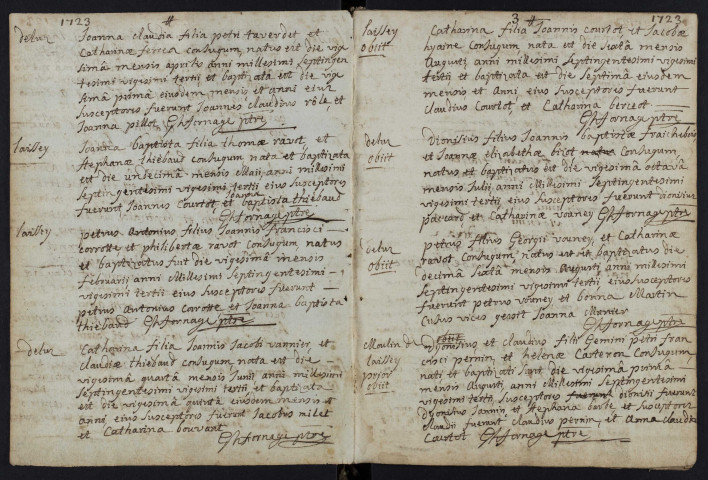 1723 #
detur Joanna claudia filia petri taverdet et
Catharinæ ferrea Conjugum, natus est die vige
simâ mensis aprilis anni millesimi septingen
tesimi vigesimi tertii et baptizata est die vige
sima prima eiusdem mensis et anni eius
susceptores fuerunt Joannes Claudius et
Joanna pillot. fornage ptre
laissey Joanna baptista filia thomæ ravot, et
stephanæ thiebaud conjugum nata et baptizata
est die undecima mensis Maii, anni millesimi
Septingentesimi vigesimi tertii eius susceptores
fuerunt Joannes Courtot et Joanna baptista thiebaud
fornage ptre
laissey petrus Antonius filius Joannis francisci
corrotte et philibertæ ravot Conjugum natus
et baptizatus fuit die vigesimâ mensis
februarii anni Millesimi Septingentesimi
vigesimi tertii eius susceptores fuerunt
petrus Antonius Corrotte et Joanna baptista
thiebaud fornage ptre
detur Catharina filia Joannis Jacobi vannier, et
Claudiæ thiebaud conjugum nata est die
vigesimâ quartâ mensis Junii anni millesimi
Septingentesimi vigesimi tertii et baptizata
est die vigesimâ quintâ eiusdem mensis et
anni, eius susceptores fuerunt Jacobus milet
et Catharina bouvant
fornage ptre
3 # 1723
laissey obiit Catharina filia Joannis Courtot et Jacobæ
hyaine Conjugum, nata est die sextâ mensis
Augusti anni millesimi Septingentesimi vigesimi
tertii et baptizata est die Septimâ eiusdem
mensis et Anni, eius susceptores fuerunt
Claudius Courtot, et Catharina berceot
fornage ptre
detur obiit Dionisius filius Joannis baptistæ fraichelois,
et Joannæ elizabethæ bizot Conjugum,
natus et baptizatus est die vigesimâ octavâ
mensis Julii anni Millesimi Septingentesimi
vigesimi tertii, eius susceptores fuerunt dionisius
paccard et Catharina voaney fornage ptre
detur obiit petrus filius Georgii vouney, et Catharinæ
ravot Conjugum, natus est et baptizatus die
decimâ Sextâ mensis Augusti anni millesimi
Septingentesimi vigesimi tertii eius susceptores
fuerunt petrus vouney et benna Martin
Cuius vices gessit Joanna Mercier
fornage ptre
Moulin de laissey prior obiit obiit Dyonisius et Claudius filii Gemini petri fran
cisci pernin, et helenæ Carteron Conjugum
nati et baptizati sunt die vigesimâ primâ
mensis Augusti, anni Millesimi Septingentesimi
vigesimi tertii Susceptores fuerunt dionisii fuerunt
dyonisius Jannin, et stephana et susceptores
Claudii fuerunt claudius pernin, et Anna claudia
Courtot fornage ptre